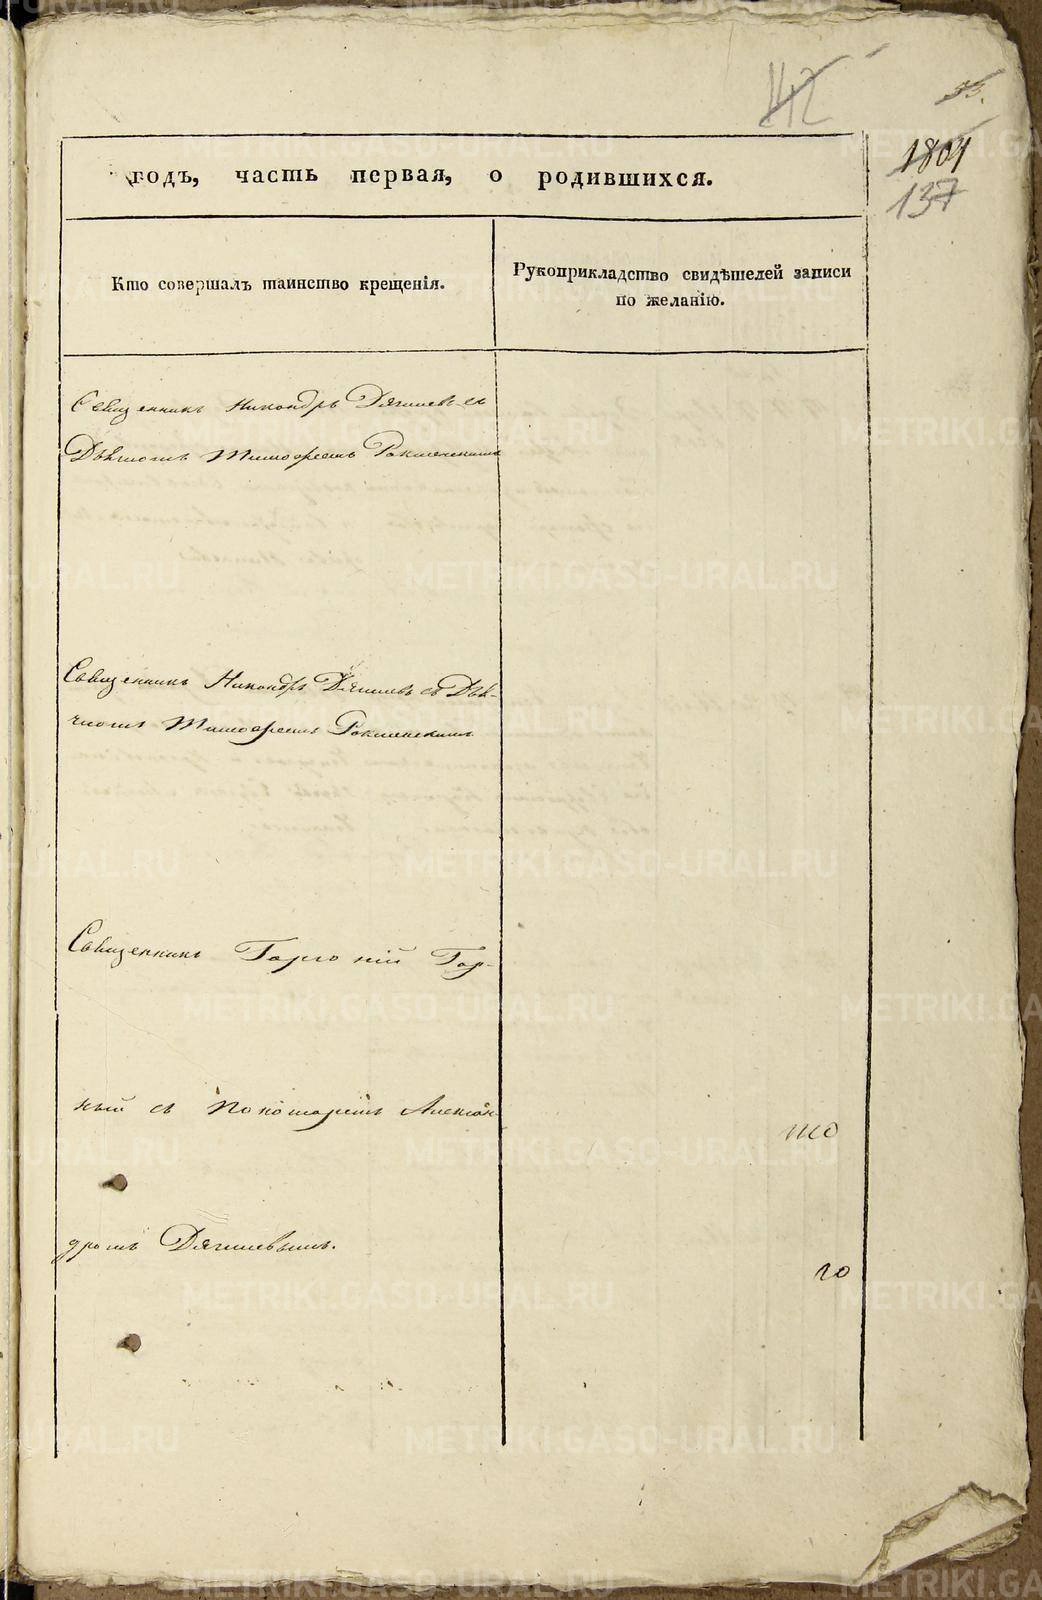 112
33.
1801
137
годъ, часть первая, о родившихся.
Кто совершалъ таинство крещенія.
Рукоприкладство свидѣтелей записи
по желанію.
Священникъ Никандръ Дягилевъ съ
Дьячкомъ Тимофеемъ
Священникъ Никандръ Дягилевъ съ Дья-
чкомъ Тимофеемъ
Священникъ Горгоній Гор-
ный съ Пономаремъ Алексан-
дромъ Дягилевымъ.
METRIKI.GASO-URAL.RU